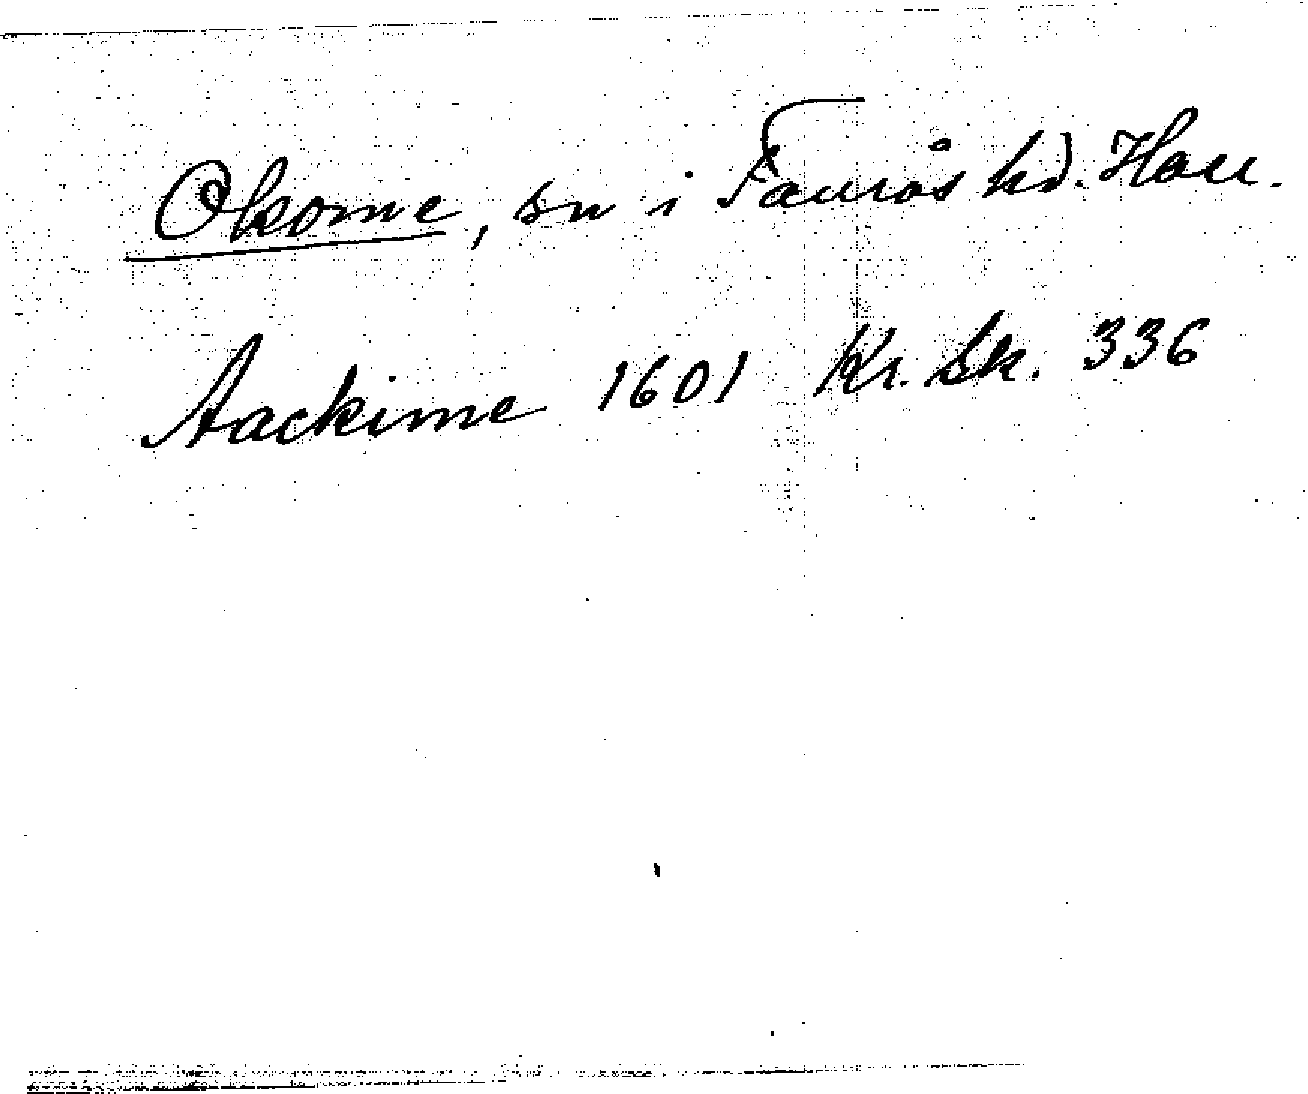 Okome, sn i Faurås hd. Hall.
Aackime 1601 Kr. Sk. 336